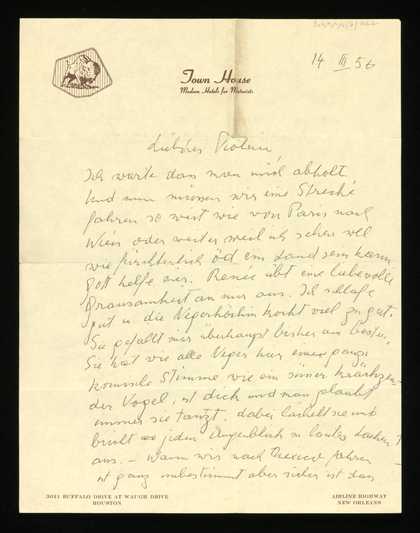 14 III 56
Town House
Modern Hotels for Motorists
Ich warte dass man mich abholt
Und nun müssen wir eine Strecke
fahren so weit wie von Paris nach
Wien oder weiter weil ich sehen soll
wie fürchterlich öd ein Land sein kann
Gott helfe mir. Renée übt eine liebevolle
Grausamkeit an mir aus. Ich schlafe
gut u. die Negerköchin kocht viel zu gut.
Sie gefällt mir überhaupt bisher am besten,
Sie hat wie alle Neger hier eine ganz
komische Stimme wie ein krächzen-
der Vogel, ist dick und man glaubt
immer sie tanzt. dabei lächelt sie und
bricht jeden Augenblick in lautes Lachen
aus. – Wann wir nach fahren
ist ganz unbestimmt aber sicher ist dass
3011 BUFFALO DRIVE AT WAUGH DRIVE
HOUSTON
AIRLINE HIGHWAY
NEW ORLEANS